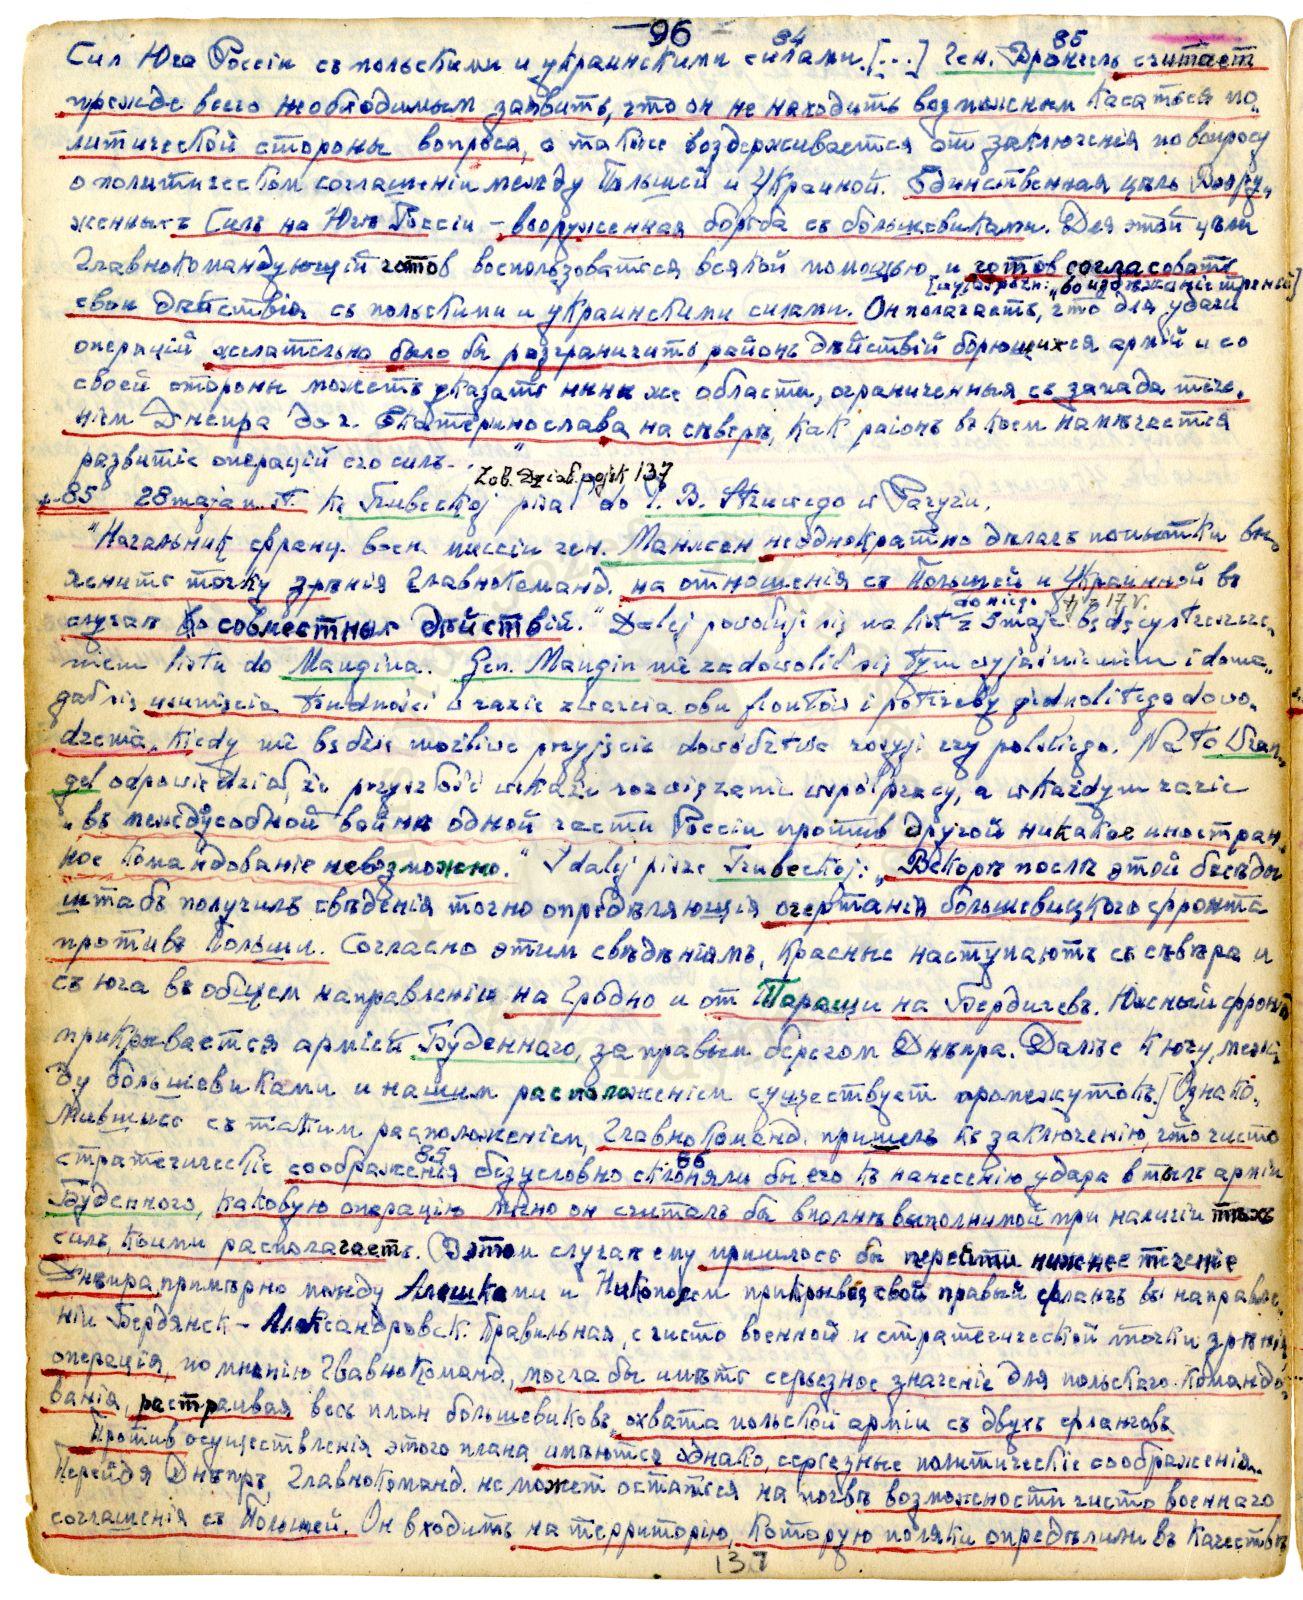 — 96 =
84 85
Сил Юга Россіи съ польскими и украинскими силами. [...] Ген. Врангель считает
прежде всего необходимым заявить, что он не находить возможным касаться по-
литической стороны вопроса, а также воздерживается от заключенія по вопросу
о политическом соглашеніи между Польшей и Украиной. Единственная цѣль Воору-
женныхъ Силъ на Югѣ Россіи – вооруженная борьба съ большевиками. Для этой цѣли
Главнокомандующій готов воспользоваться всякой помощью и готов согласовать
"во избѣжаніе треній]
свои дѣйствія съ польскими и украинскими силами. Он полагаетъ, что для удачи
операцій желательно было бы разграничить районъ дѣйствій борющихся армій и со
своей стороны можетъ указать нынѣ же области, ограниченныя съ запада тече-
ніем Днепра до г. Екатеринослава на сѣверъ, как раіонъ въ коем намѣчается
развитіе операцій его силъ..."
Zob. Dział. pojęk 137
+-85 28 maja n. st. Kę Trubeckoj pisał do P. B. Struwego w Paryżu.
"Начальник франц. воен. миссіи ген. Манжен неоднократно дѣлаль попытки вы-
яснить точку зрѣнія Главнокоманд. на отношенія съ Польшей и Украинной въ
do niego
случаѣ совместных дѣйствій." Dalej powołuje się na list z 5 maja będący streszcze-
niem listu do Mangina. Gen. Mangin nie zadowolił się tym wyjaśnieniem i doma-
gał się usunięcia trudności w razie zwarcia obu frontów i potrzeby jednolitego dowo-
dzenia, kiedy nie będzie możliwe przyjęcie dowództwa rosyj. czy polskiego. Na to Wran-
gel odpowiedział, że przyszłość wskaże rozwiązanie współpracy, a w każdym razie
„въ междусобной войнѣ одной части Россіи противъ другой никакое иностран-
ное командованіе невозможно." I dalej pisze Trubeckoj: „Вскорѣ послѣ этой бесѣды
штабъ получилъ свѣденія точно опредѣляющія очертанія большевицкого фронта
противъ Польши. Согласно этим свѣдѣніямъ, красные наступаютъ съ сѣвера и
съ юга въ общем направленіи на Гродно и от Таращи на Бердичевъ. Южный фронт
прикрывается арміей Буденного, за правым берегом Днѣпра. Далѣе к югу, меж-
ду большевиками и нашим расположеніем существует промежуток.] Ознако-
мившись съ таким расположеніем, Главнокоманд. пришелъ къ заключенію, что чисто
85 86
стратегическіе соображенія безусловно склоняли бы его къ нанесенію удара в тылъ арміи
Буденного, каковую операцію лично он считалъ бы вполнѣ выполнимой при наличіи тѣхъ
силъ, коими располагаетъ. В этом случаѣ ему пришлось бы перейти нижнее теченіе
Днѣпра, примѣрно между Алешками и Никополем прикрывая свой правый флангъ въ направле-
ніи Бердянск – Александровск. Правильная, с чисто военной и стратегической точки зрѣнія,
операція, по мнѣнію Главнокоманд., могла бы имѣть серьезное значеніе для польскаго командо-
ванія, растраивая весь план большевиковъ, охвата польской арміи съ двухъ фланговъ.
Против осуществленія этого плана имѣются однако, серьезные политическіе соображенія.
Перейдя Днѣпръ, Главнокоманд. не может остаться на почвѣ возможности чисто военнаго
соглашенія съ Польшей. Он входитъ на территорію, которую поляки опредѣлили въ качествѣ
137